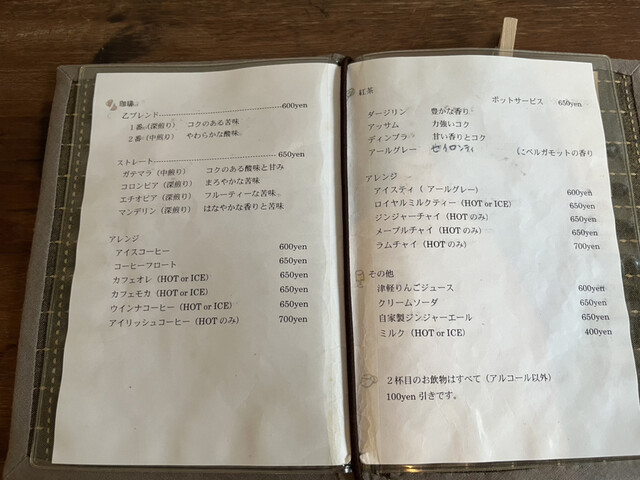 珈琲
乙ブレンド 600yen
1番(深煎り) コクのある苦味
2番(中煎り) やわらかな酸味
ストレート 650yen
ガテマラ(中煎り) コクのある酸味と甘み
コロンビア(深煎り) まろやかな苦味
エチオピア(深煎り) フルーティーな苦味
マンデリン(深煎り) はなやかな香りと苦味
アレンジ
アイスコーヒー 600yen
コーヒーフロート 650yen
カフェオレ(HOT or ICE) 650yen
カフェモカ(HOT or ICE) 650yen
ウインナコーヒー(HOT or ICE) 650yen
アイリッシュコーヒー(HOT のみ) 700yen
紅茶
ポットサービス 650yen
ダージリン 豊かな香り
アッサム 力強いコク
ディンブラ 甘い香りとコク
アールグレー セイロンティ にベルガモットの香り
アレンジ
アイスティ(アールグレー) 600yen
ロイヤルミルクティー(HOT or ICE) 650yen
ジンジャーチャイ(HOT のみ) 650yen
メープルチャイ(HOT のみ) 650yen
ラムチャイ(HOT のみ) 700yen
その他
津軽りんごジュース 600yen
クリームソーダ 650yen
自家製ジンジャーエール 650yen
ミルク(HOT or ICE) 400yen
2杯目のお飲物はすべて(アルコール以外)
100yen 引きです。